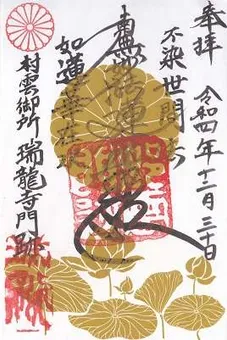 奉拝
令和四年十二月三十日
不染世間法
南無妙法蓮華経
如蓮華在水
村雲御所
瑞龍寺門跡